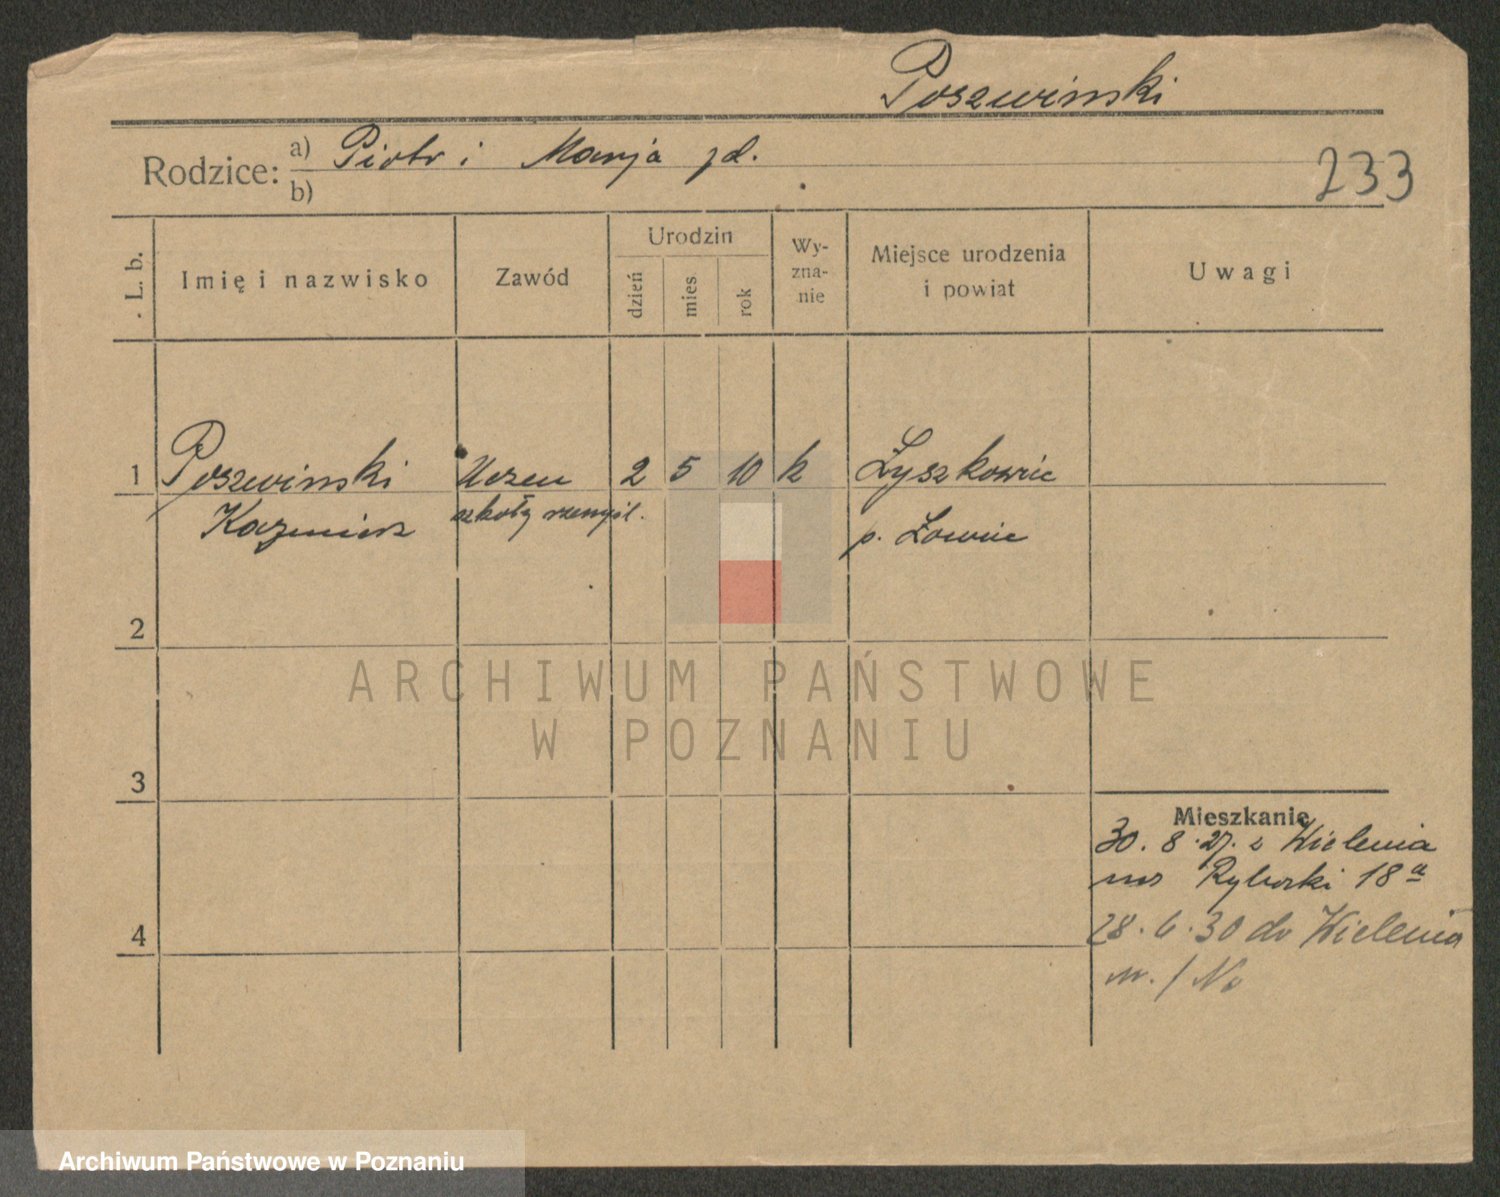 Poszwinski
Rodzice: a) Piotr i Marja zd.
b)
233
L. b.
Imię i nazwisko
Zawód
Urodzin
dzień
mies
rok
Wy-
zna-
nie
Miejsce urodzenia
i powiat
Uwagi
1 Poszwinski Uczeń 2 5 10 k Łyszkowic
Kazimierz szkoły rzemyśl. p. Łowic
2
ARCHIWUM PAŃSTWOWE
W POZNANIU
3
Mieszkanie
30. 8. 27. z Wielenia
Rybaki 18a
4
28. 6. 30 do Wielenia
Archiwum Państwowe w Poznaniu